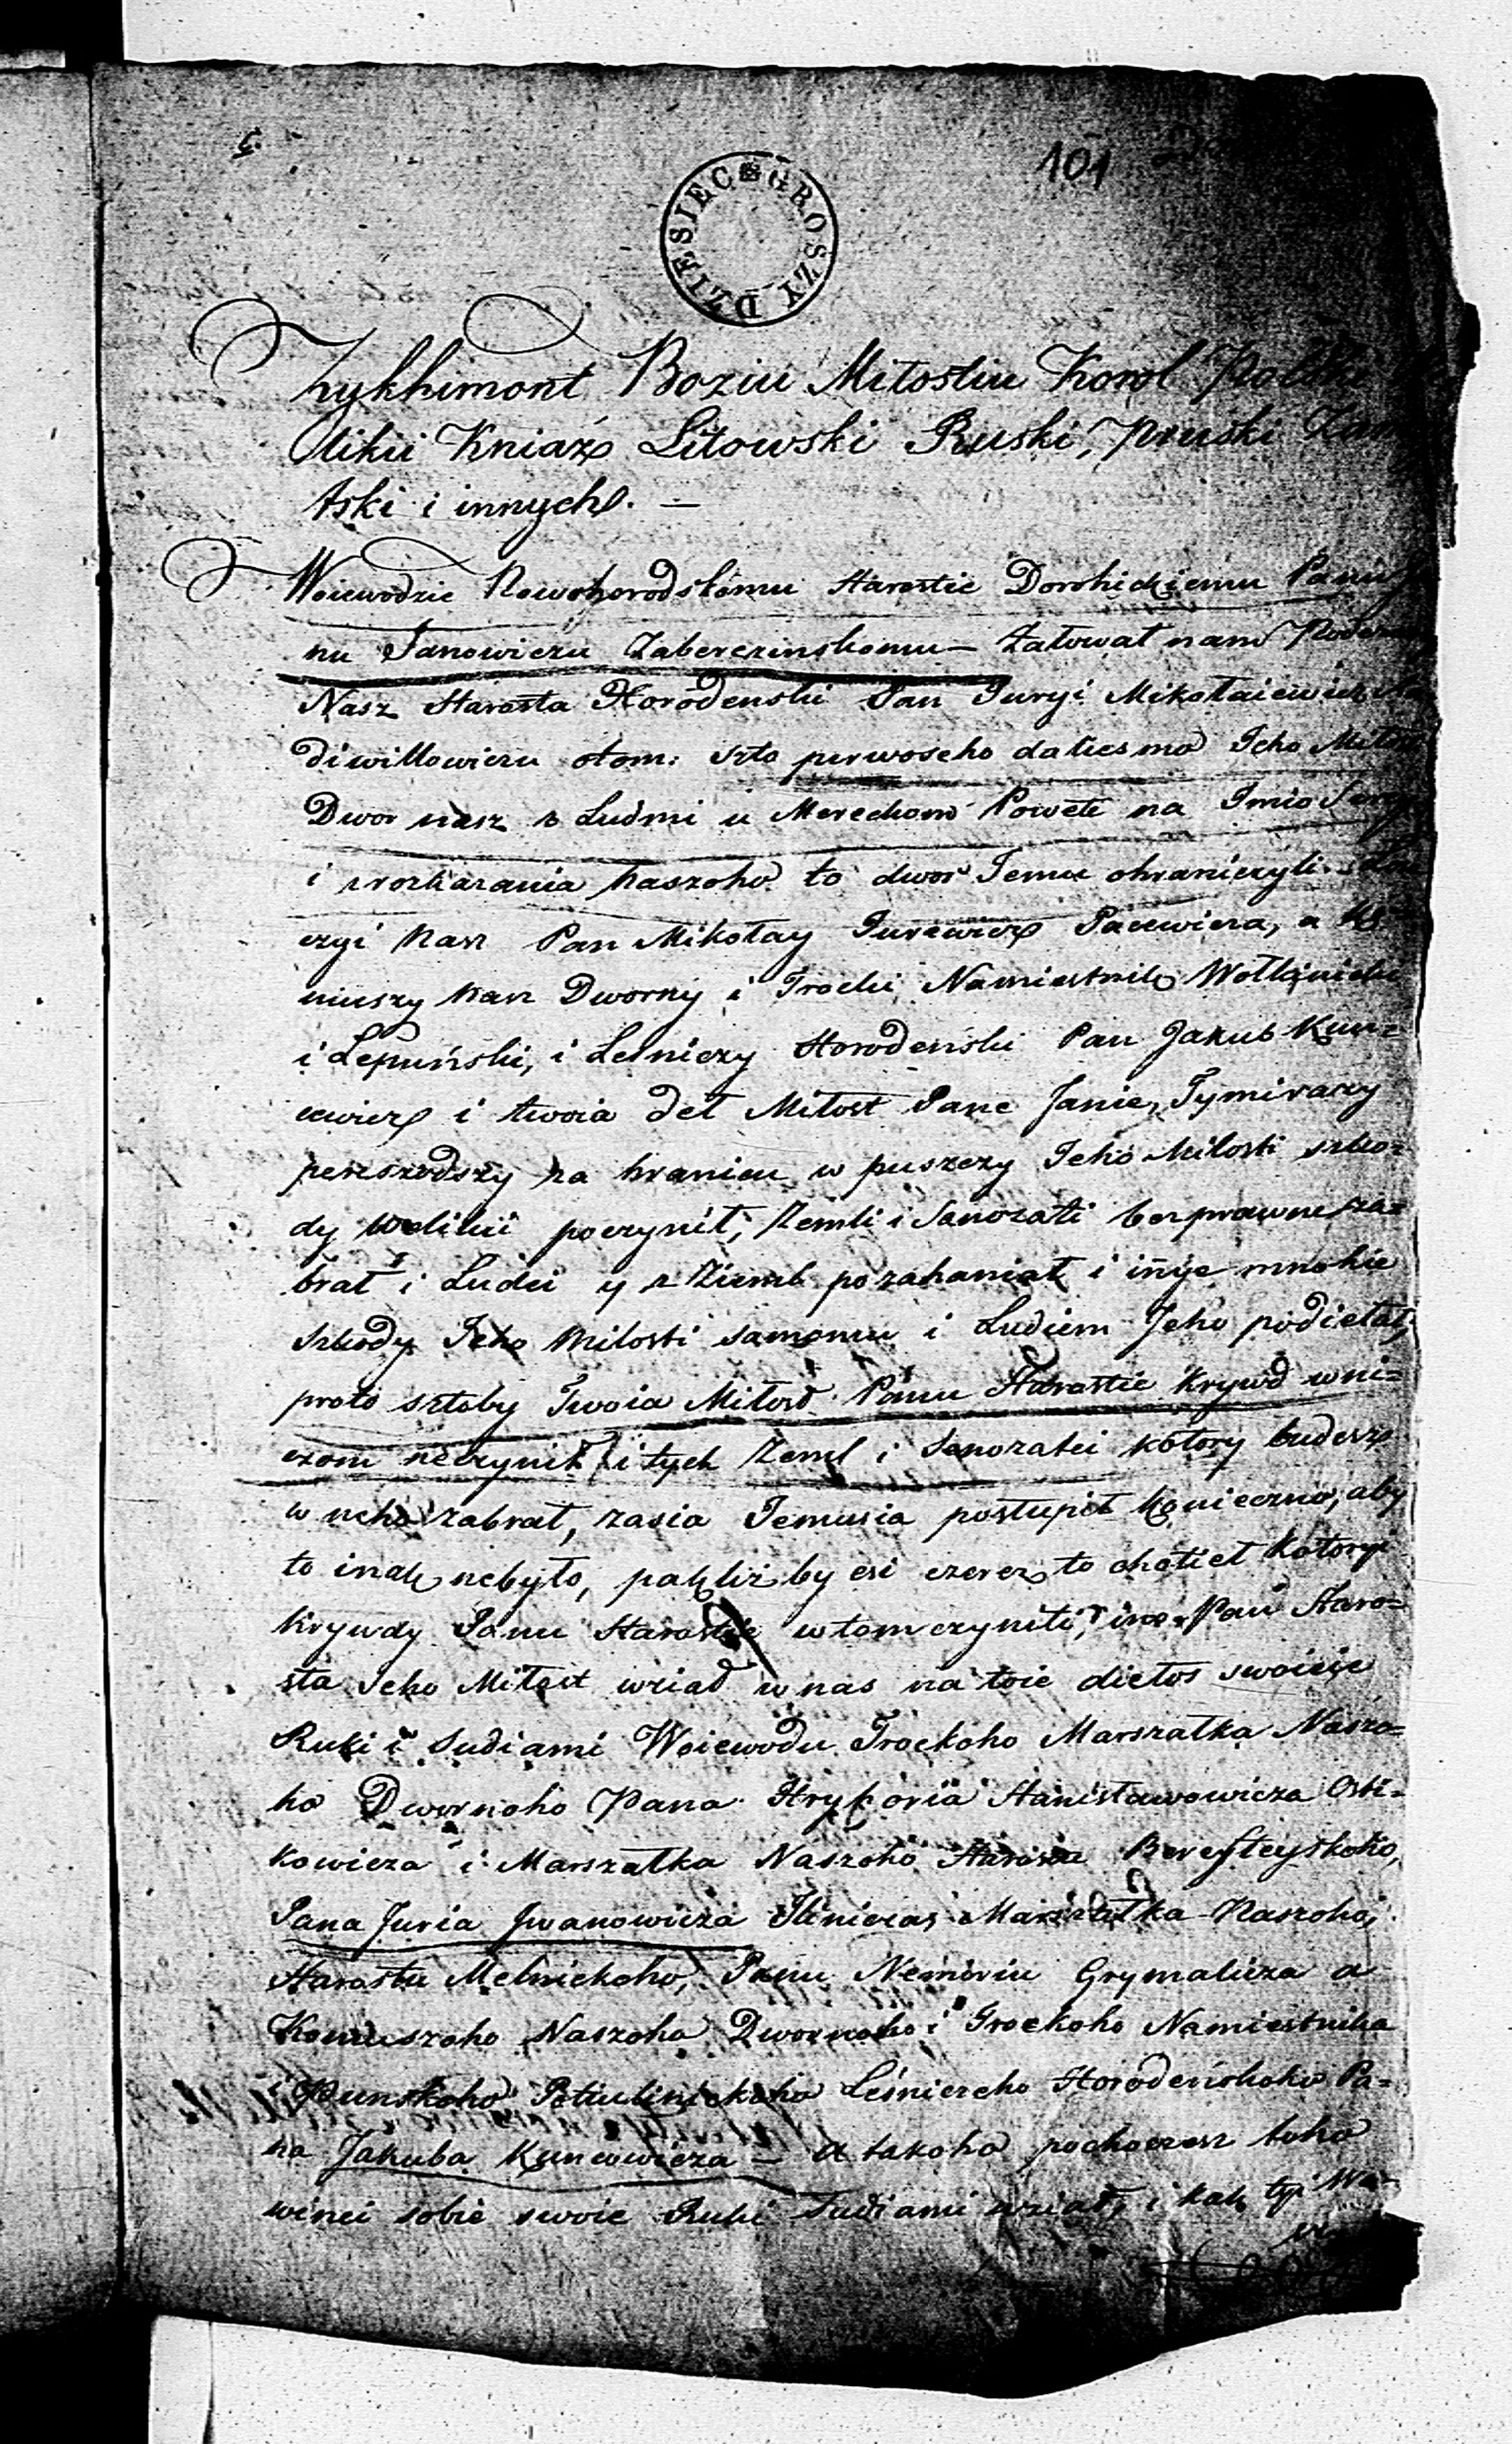 101
DZIESIĘC GROSZY
Zykhimont Boziu Miłostiu Korol Polski
likii Kniaź Litowski Ruski, Pruski
tski i innych. —
Woiewodzie Nowohorodskomu Starostie Dorohickiemu Panu
nu Janowiczu Zaberezinskomu — Załowat nam
Nasz Starosta Horodenski Pan Juryi Mikołaiewicz
diwiłłowicza otom: szto perwoseho daliesmo Jeho Miłosti
Dwor nasz z Ludmi u Merechom Powete na Imio
i z rozkazania naszoho to dwor Jemu ohraniczyli.
czyi Nasz Pan Mikołay Jurewicz Pacewicza, a
niuszy nasz Dworny i Trocki Namiestnik
i Lepuński, i Leśniczy Horodeński Pan Jakub Kun=
cewicz i twoia det Miłost Pane Janie,
pereszodszy za hranicu w puszczy Jeho Miłosti szko=
dy welikii poczynił, Zemli i Sanozati bezprawne za=
brał i Ludei y z Ziemli pozahaniał i inyie mnohie
szkody Jeho Miłosti samomu i Ludiem Jeho podiełał,
proto sztoby Twoia Miłost Panu Starostie krywd wni=
czom neczynił i tych Zeml i Senozatei kotory budesz
w neho zabrał, zasia Jemusia postupił konieczno, aby
to inak nebyło, pakliż by esi czerez to chotieł kotoryi
krywdy Panu Starostie wtom czyniti, ino Pan Staro=
sta Jeho Miłost wziął w nas na toie dieło swoieie
Ruki i Sudiami Woiewodu Trockoho Marszałka Naszo=
ho Dwornoho Pana Hryhoria Stanisławowicza Osti=
kowicza i Marszałka Naszoho Starostu Beresteyskoho,
Pana Juria Iwanowicza Ilinicza, Marszałka Naszoho,
Starostu Melnickoho, Panu Nemiriu Grymalicza a
Koniuszoho Naszoho Dwornoho i Trockoho Namiestnika
i Punskoho Leśniczeho Horodeńskoho Pa=
na Jakuba Kuncewicza — a takoho pochoczesz toho
winei sobie swoie Ruki Sudiami wziął, i kak tyi